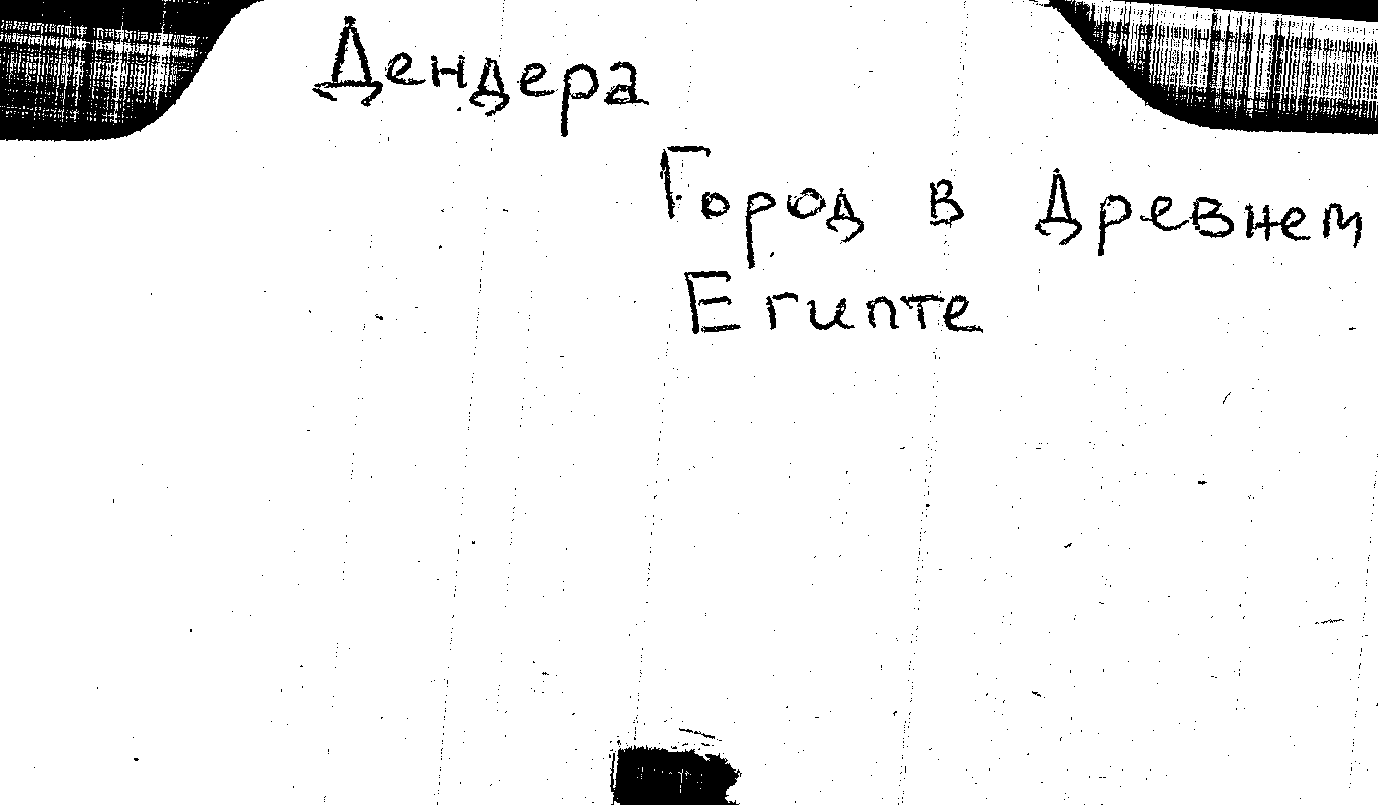 Дендера
Город в Древнем
Египте